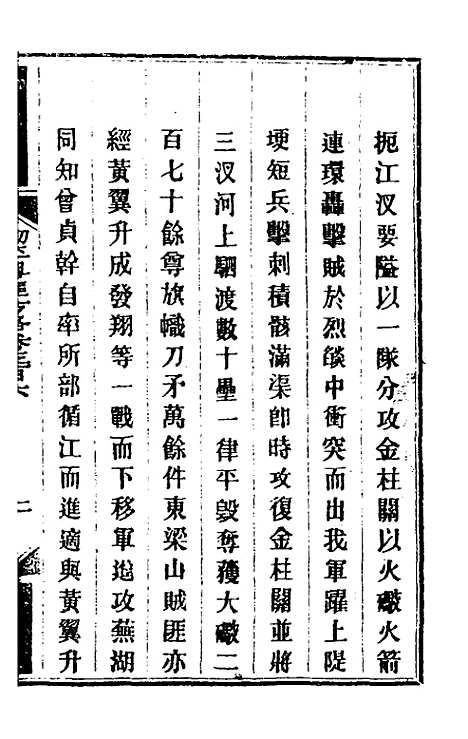 扼江汊要隘以一隊分攻金柱關以火礮火箭
連環轟擊賊於烈燄中衝突而出我軍躍上隄
埂短兵擊刺積骸滿渠卽時攻復金柱關並將
三汊河上駟渡數十壘一律平毀奪獲大礮二
百七十餘尊旗幟刀矛萬餘件東梁山賊匪亦
經黃翼升成發翔等一戰而下移軍進攻蕪湖
同知曾貞幹自率所部循江而進適與黃翼升